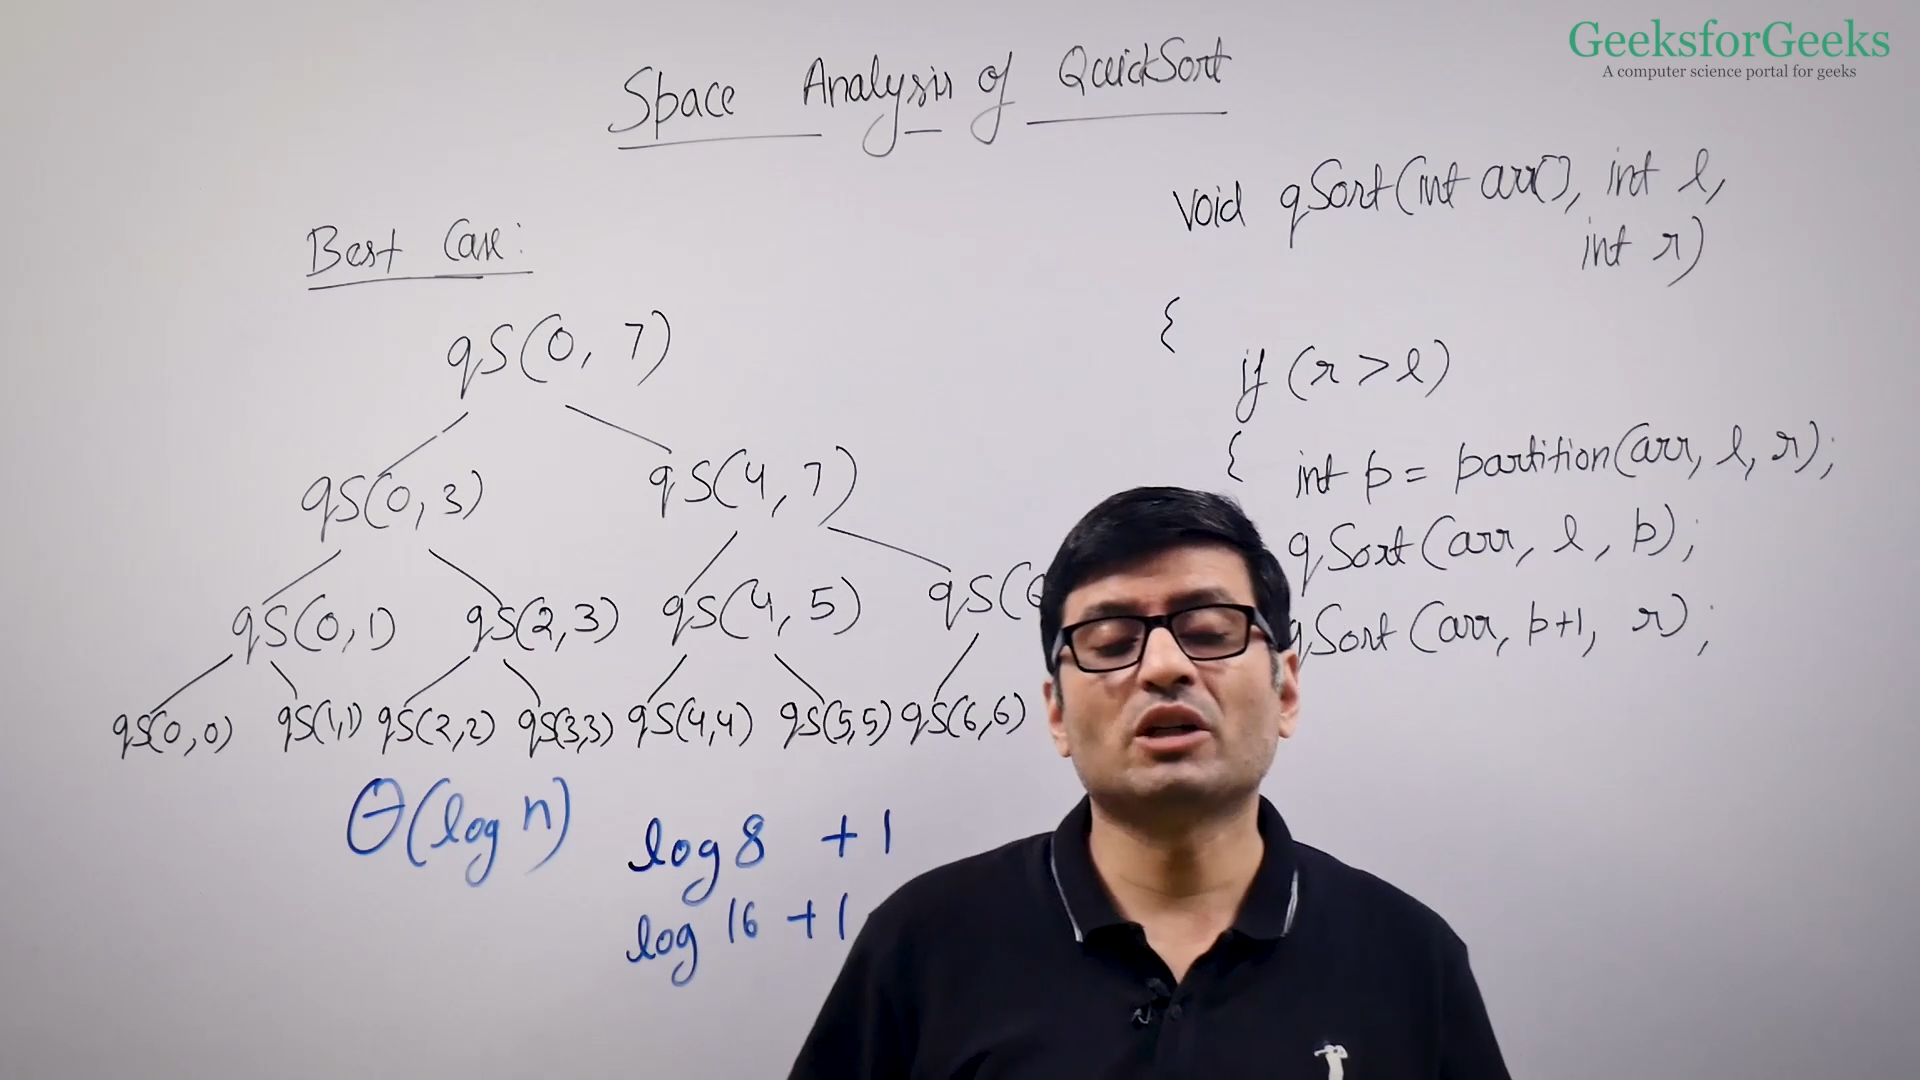 GeeksforGeeks
A computer science portal for geeks
Space Analysis of QuickSort
Best Case:
qS(0, 7)
qS(0, 3) qS(4, 7)
qS(0, 1) qS(2, 3) qS(4, 5) qS(
qS(0, 0) qS(1, 1) qS(2, 2) qS(3, 3) qS(4, 4) qS(5, 5) qS(6, 6)
θ(log n)
log 8 + 1
log 16 + 1
void qSort(int arr[], int l,
int r)
{
if (r > l)
{ int p = partition(arr, l, r);
qSort(arr, l, p);
qSort(arr, p+1, r);